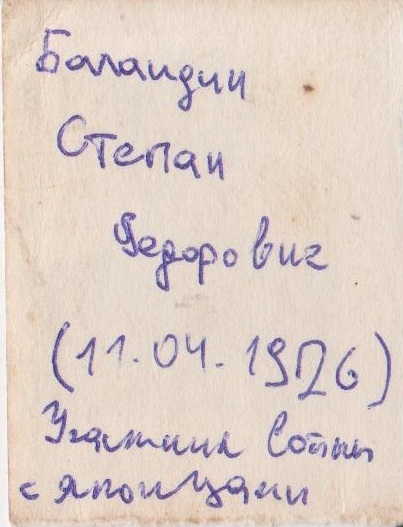 Баландин
Степан
Федорович
(11.04.1926)
Участник Войны
с японцами